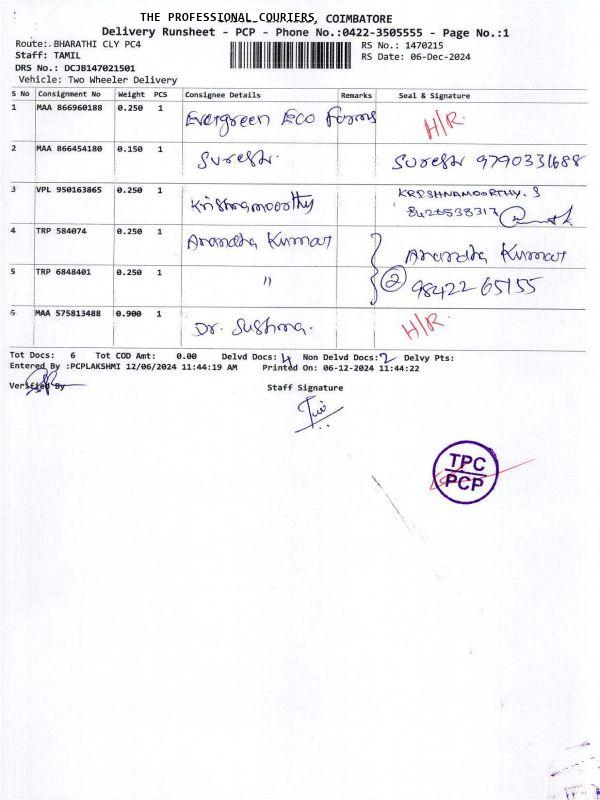 THE PROFESSIONAL COURIERS, COIMBATORE
Delivery Runsheet - PCP - Phone No.:0422-3505555 - Page No.:1
Route: BHARATHI CLY PC4 RS No.: 1470215
Staff: TAMIL RS Date: 06-Dec-2024
DRS No.: DCJB147021501
Vehicle: Two Wheeler Delivery
S No Consignment No Weight PCS Consignee Details Remarks Seal & Signature
1 MAA 866960188 0.250 1 Evergreen Eco Forms H/R
2 MAA 866454180 0.150 1 Suresh. Suresh 9790331688
3 VPL 950163865 0.250 1 Krishnamoorthy KRISHNAMOORTHY. S
8426538317
4 TRP 584074 0.250 1 Anandha Kumar Anandha Kumar
5 TRP 6848401 0.250 1 " 2 98422-65155
6 MAA 575813488 0.900 1 Dr. Sushma. H/R
Tot Docs: 6 Tot COD Amt: 0.00 Delvd Docs: 4 Non Delvd Docs: 2 Delvy Pts:
Entered By :PCPLAKSHMI 12/06/2024 11:44:19 AM Printed On: 06-12-2024 11:44:22
Verified By Staff Signature
TPC
PCP